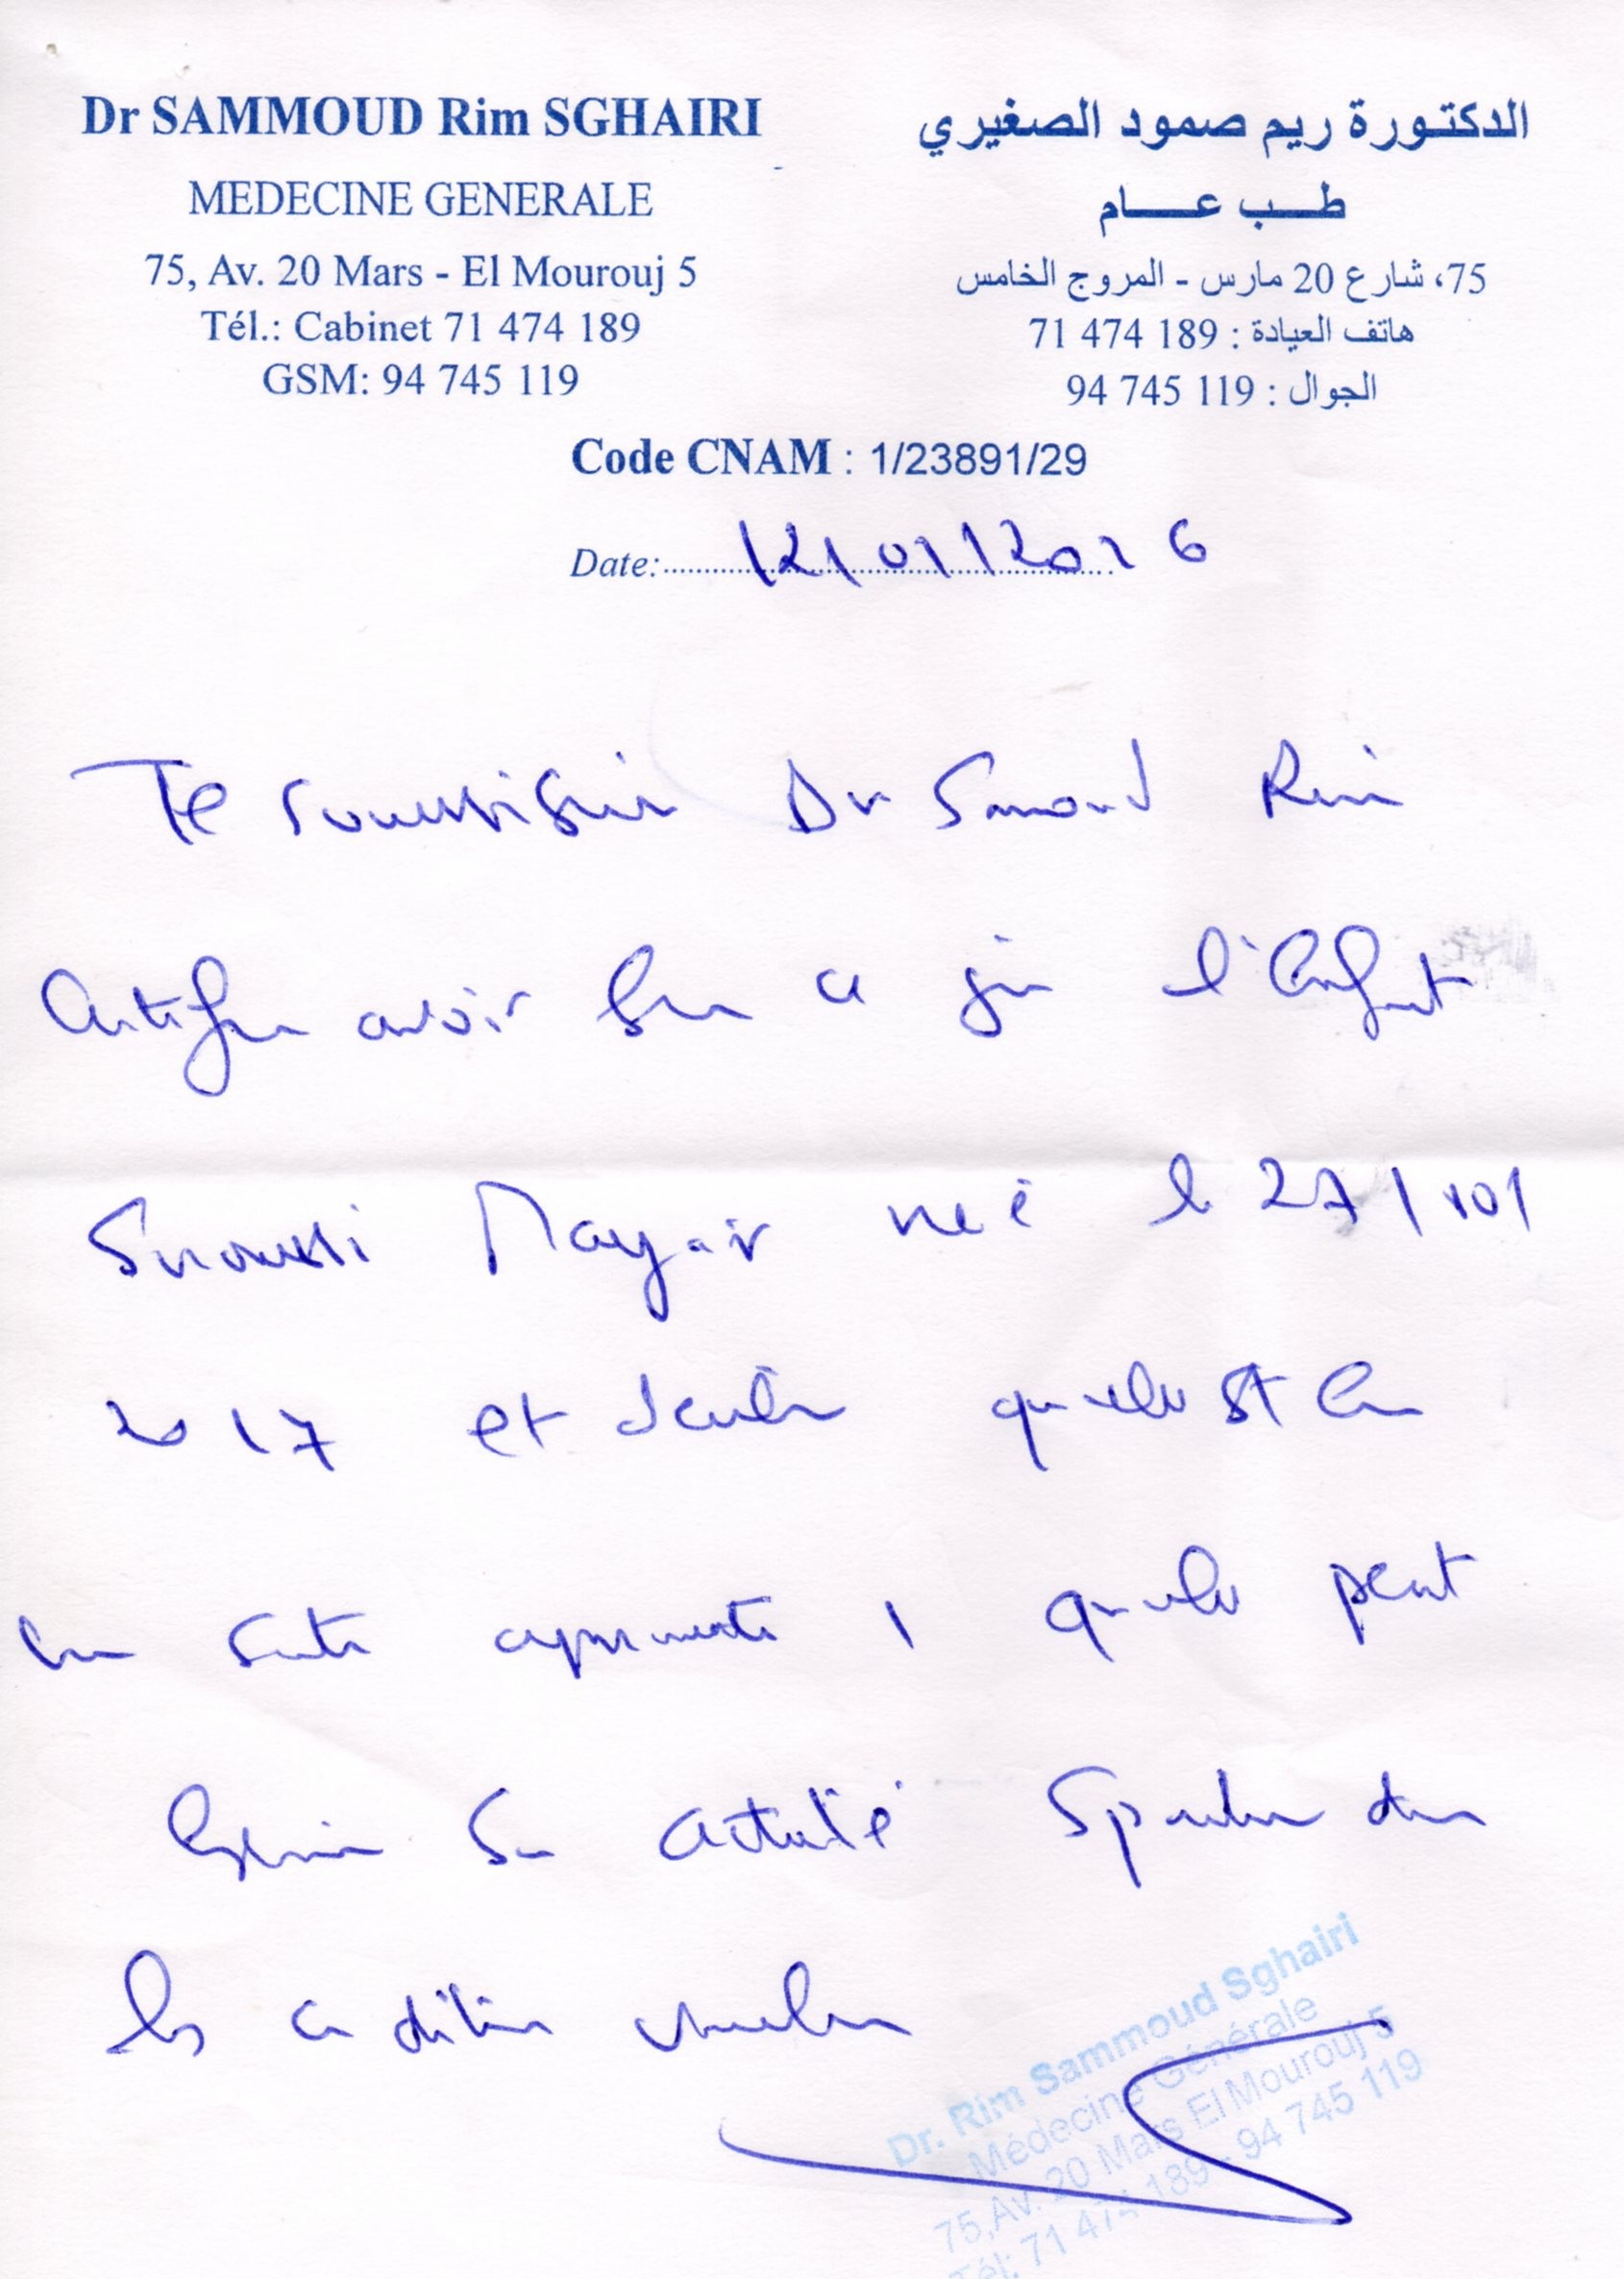 Dr SAMMOUD Rim SGHAIRI
MEDECINE GENERALE
75, Av. 20 Mars - El Mourouj 5
Tél.: Cabinet 71 474 189
GSM: 94 745 119
الدكتورة ريم صمود الصغيري
طب عام
75، شارع 20 مارس - المروج الخامس
هاتف العيادة : 189 474 71
الجوال : 119 745 94
Code CNAM : 1/23891/29
Date: 12/01/2026
Je soussigné Dr Samoud Rim
Certifie avoir ce jour l'enfant
Snoussi née le 27/10/
2017 et qu'elle est en
santé apparente, qu'elle peut
exercer son activité Sportive dans
les conditions
Dr. Rim Sammoud Sghairi
Médecine Générale
75, Av. 20 Mars El Mourouj 5
Tél: 71 474 189 - 94 745 119